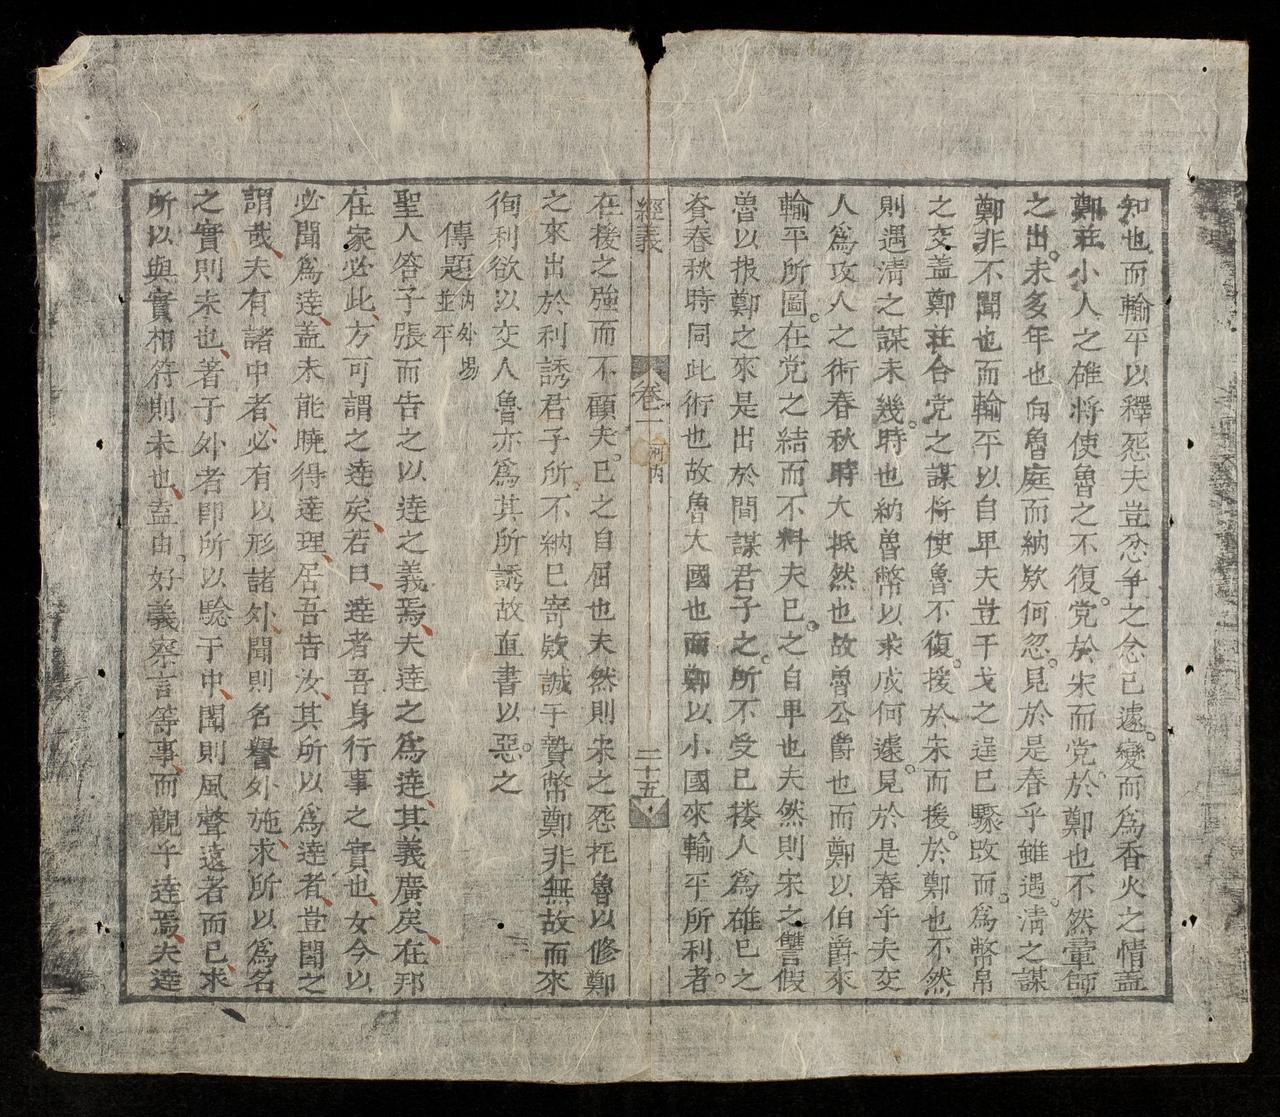 知也而輸平以釋怨夫豈忿爭之念已遽變而為香火之情盖
鄭莊小人之雄將使魯之不復党於宋而党於鄭也不然鞏師
之出未多年也向魯庭而納欵何忽見於是春乎雖遇清之謀
鄭非不聞也而輸平以自卑夫豈干戈之逞已驟改而為幣帛
之交盖鄭莊合党之謀將使魯不復援於宋而援於鄭也不然
則遇清之謀未幾時也納魯幣以求成何遽見於是春乎夫交
人為攻人之術春秋時大抵然也故魯公爵也而鄭以伯爵來
輸平所圖在党之結而不料夫已之自卑也夫然則宋之讐假
魯以报鄭之來是出於間謀君子之所不受已搂人為雄已之
春秋時同此術也故魯大國也而鄭以小國來輸平所利者
經義 卷一 河内 二十五
在援之強而不顧夫已之自屈也夫然則宋之怨托魯以修鄭
之來出於利誘君子所不納已寄欵誠于贄幣鄭非無故而來
徇利欲以交人魯亦為其所誘故直書以惡之
傳題 内外場並平
聖人答子張而告之以達之義焉夫達之為達其義廣矣在邦
在家必此方可謂之達矣若曰達者吾身行事之實也女今以
必聞為達盖未能曉得達理居吾告汝其所以為達者豈聞之
謂或夫有諸中者必有以形諸外聞則名譽外施求所以為名
之實則未也著于外者即所以騐于中聞則風聲遠者而已求
所以與實相符則未也盖由好義察言等事而觀乎達焉夫達